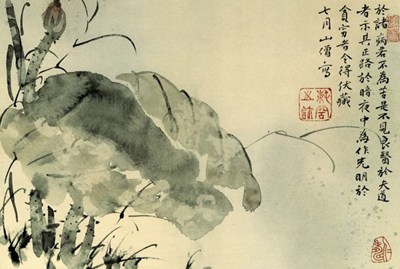 於諸病苦不為苦是不見良醫於失道
者示其正路於暗夜中為作光明於
貧窮者令得伏藏
七月山僧寫